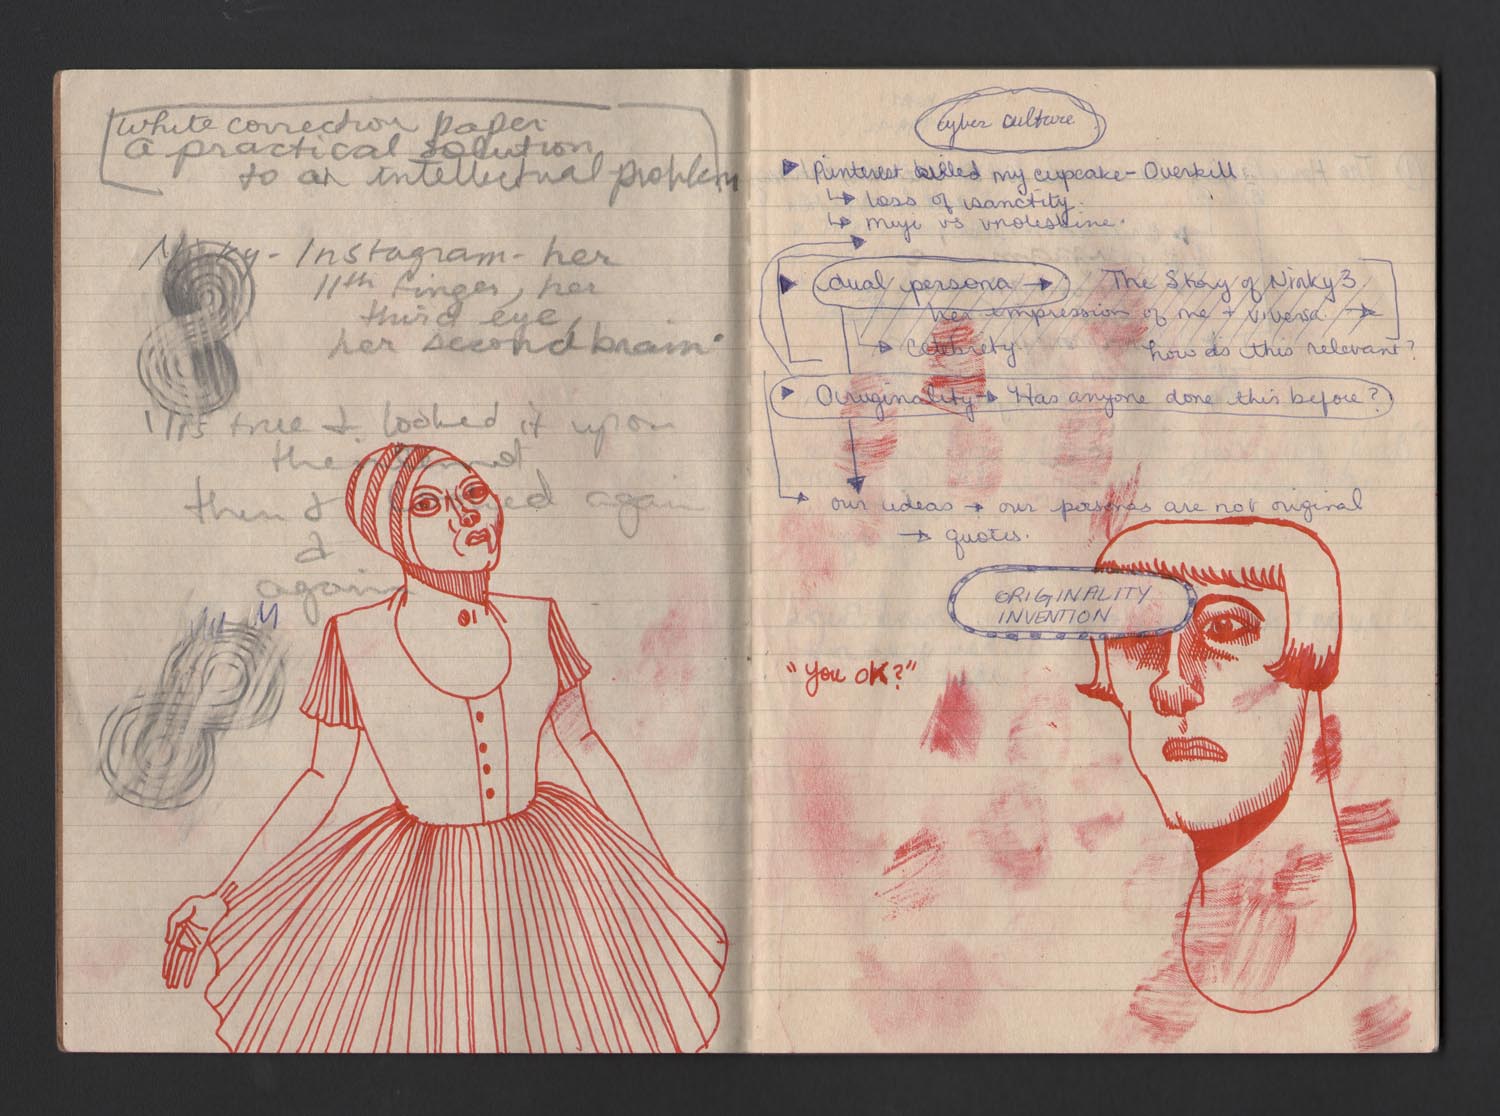 white correction paper
a practical solution
to an intellectual problem
ky - Instagram - her
11th finger, her
third eye,
her second brain.
It's true I looked it up on
the
then I looked again
&
again
cyber culture
Pinterest killed my cupcake - Overkill
↳ loss of sanctity.
↳ muji vs
dual persona → The Story of Ninky 3
her impression of me + v. versa. →
→ Celebrety how is this relevant?
Originality → Has anyone done this before?
our ideas → our personas are not original
→ quotes.
ORIGINALITY
INVENTION
"you OK?"